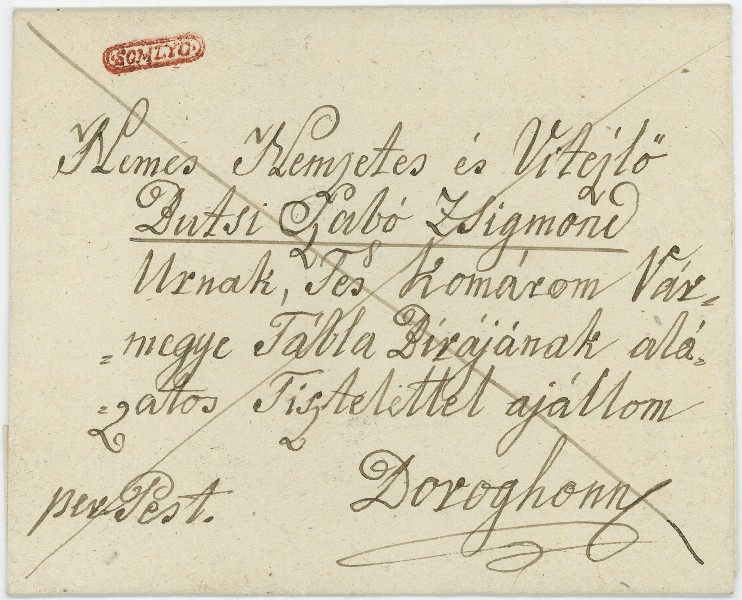 SOMLYO
Nemes Nemzetes és Vitézlő
Butsi Szabó Zsigmond
Urnak, Tes Komárom Vár=
=megye Tábla Birájának alá=
=zatos Tisztelettel ajállom
per Pest.
Doroghonn